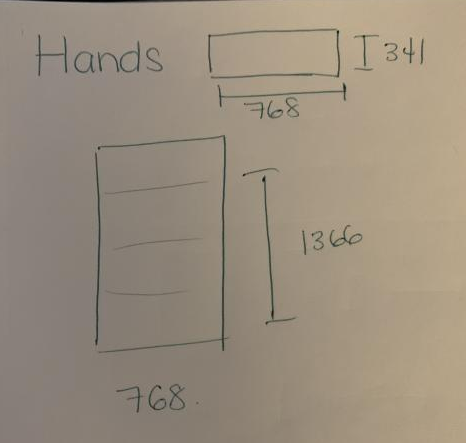 Hands
341
768
1366
768.